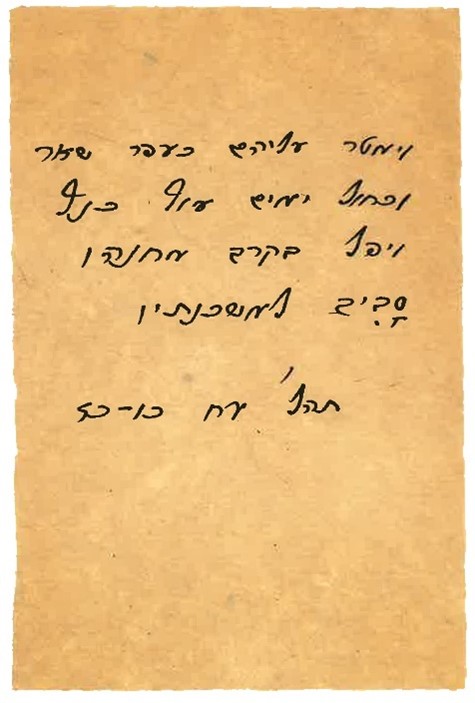 וימטר עליהם כעפר שאר
וכחול ימים עוף כנף
ויפל בקרב מחנהו
סָבִיב למשכנתיו
תהל' עח כו-כז